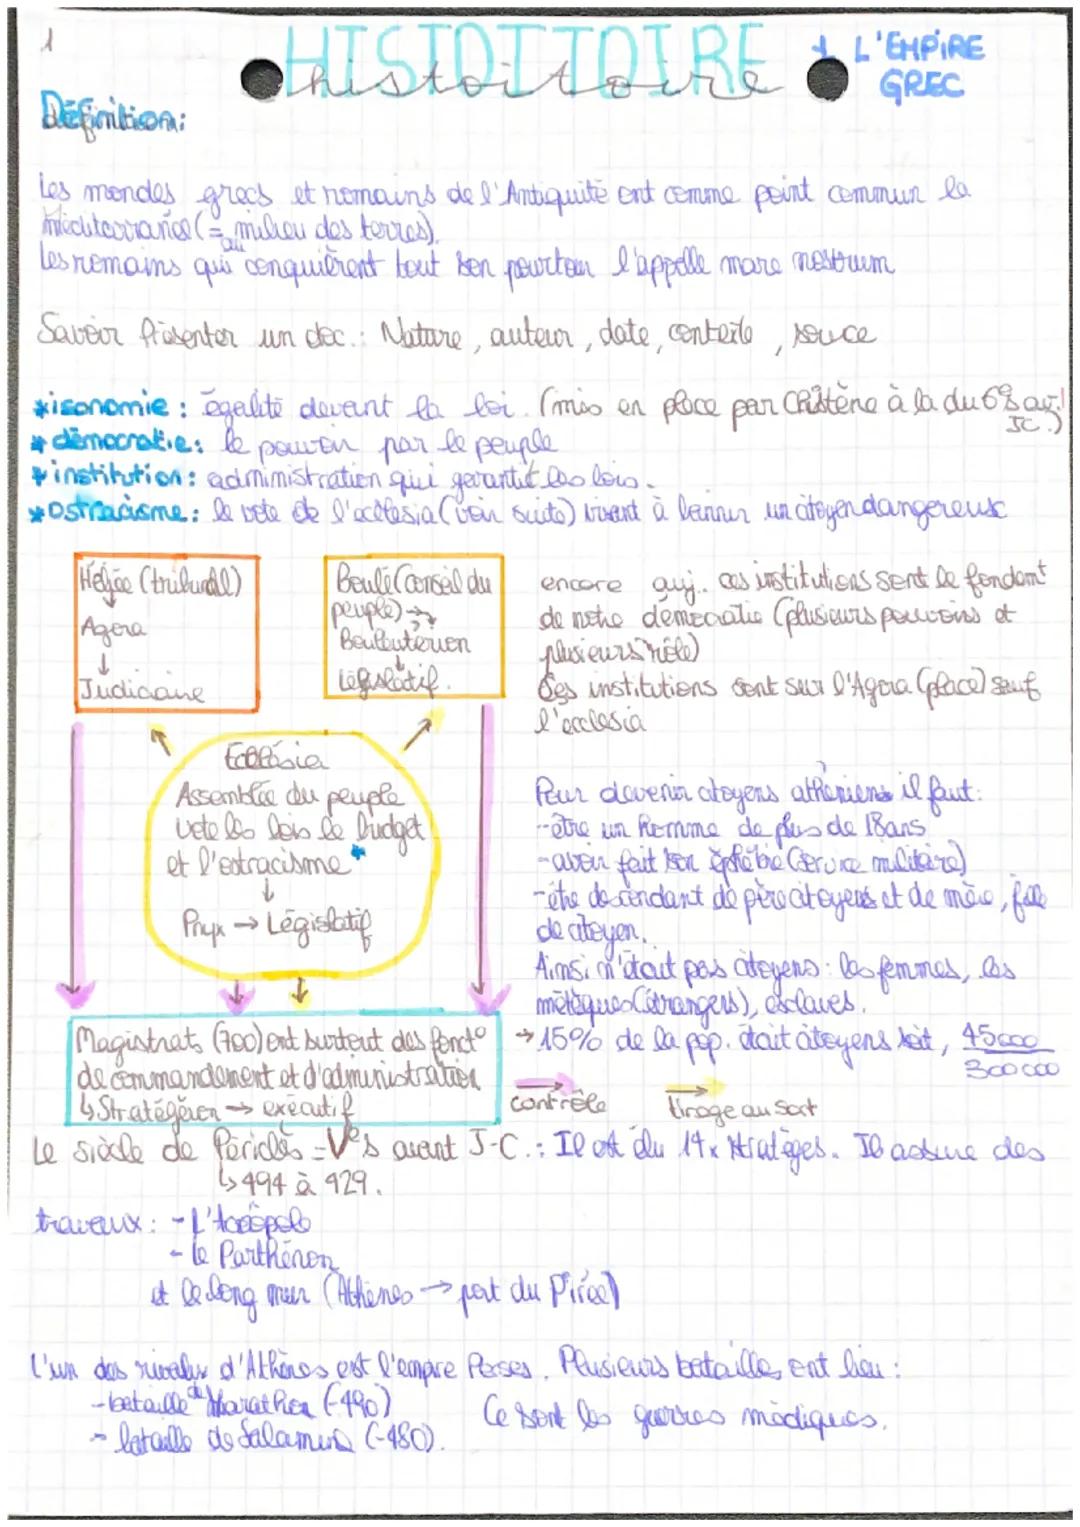 1
HISTOITOIRE
histoitoire
L'EMPIRE
GREC
Définition:
Les mondes grecs et romains de l'Antiquité ont comme point commun la
méditerranée (= au milieu des terres).
Les romains qui conquièrent tout son pourtour l'appelle mare nostrum
Savoir présenter un doc.: Nature, auteur, date, contexte, source
*isonomie: égalité devant la loi. (mis en place par Clisthène à la du 6°s av.
JC.)
*démocratie: le pouvoir par le peuple
*institution: administration qui garantit les lois.
*ostracisme: le vote de l'ecclesia (voir suite) visant à bannir un citoyen dangereux
Héliée (tribunal)
↓
Agora
↓
Judiciaire
Boulé (Conseil du
peuple) →
Bouleuterion
↓
Législatif.
encore auj.. ces institutions sont le fondamt
de notre démocratie (plusieurs pouvoirs et
plusieurs rôle)
Ces institutions sont sur l'Agora (place) sauf
l'ecclesia
Ecclésia
Assemblée du peuple
vote les lois le budget
et l'ostracisme *
↓
Pnyx → Législatif
Pour devenir citoyens athéniens il faut:
-être un homme de plus de 18ans
-avoir fait son éphébie (service militaire)
-être descendant de père citoyens et de mère, fille
de citoyen.
Ainsi n'était pas citoyens: les femmes, les
métèques (étrangers), esclaves.
→ 15% de la pop. était citoyens soit, 45000
300 000
Magistrats (700) ont surtout des fonct°
de commandement et d'administration
↳ Stratégéion → exécutif
contrôle
tirage au sort
Le siècle de Périclès = Ve s avant J-C.: Il est élu 14x stratèges. Il assure des
↳ 494 à 429.
travaux: - L'Acropole
- le Parthénon
et le long mur (Athènes → port du Pirée)
L'un des rivaux d'Athènes est l'empire Perses. Plusieurs batailles ont lieu:
-bataille de Marathon (-490)
- bataille de Salamine (-480).
Ce sont les guerres médiques.